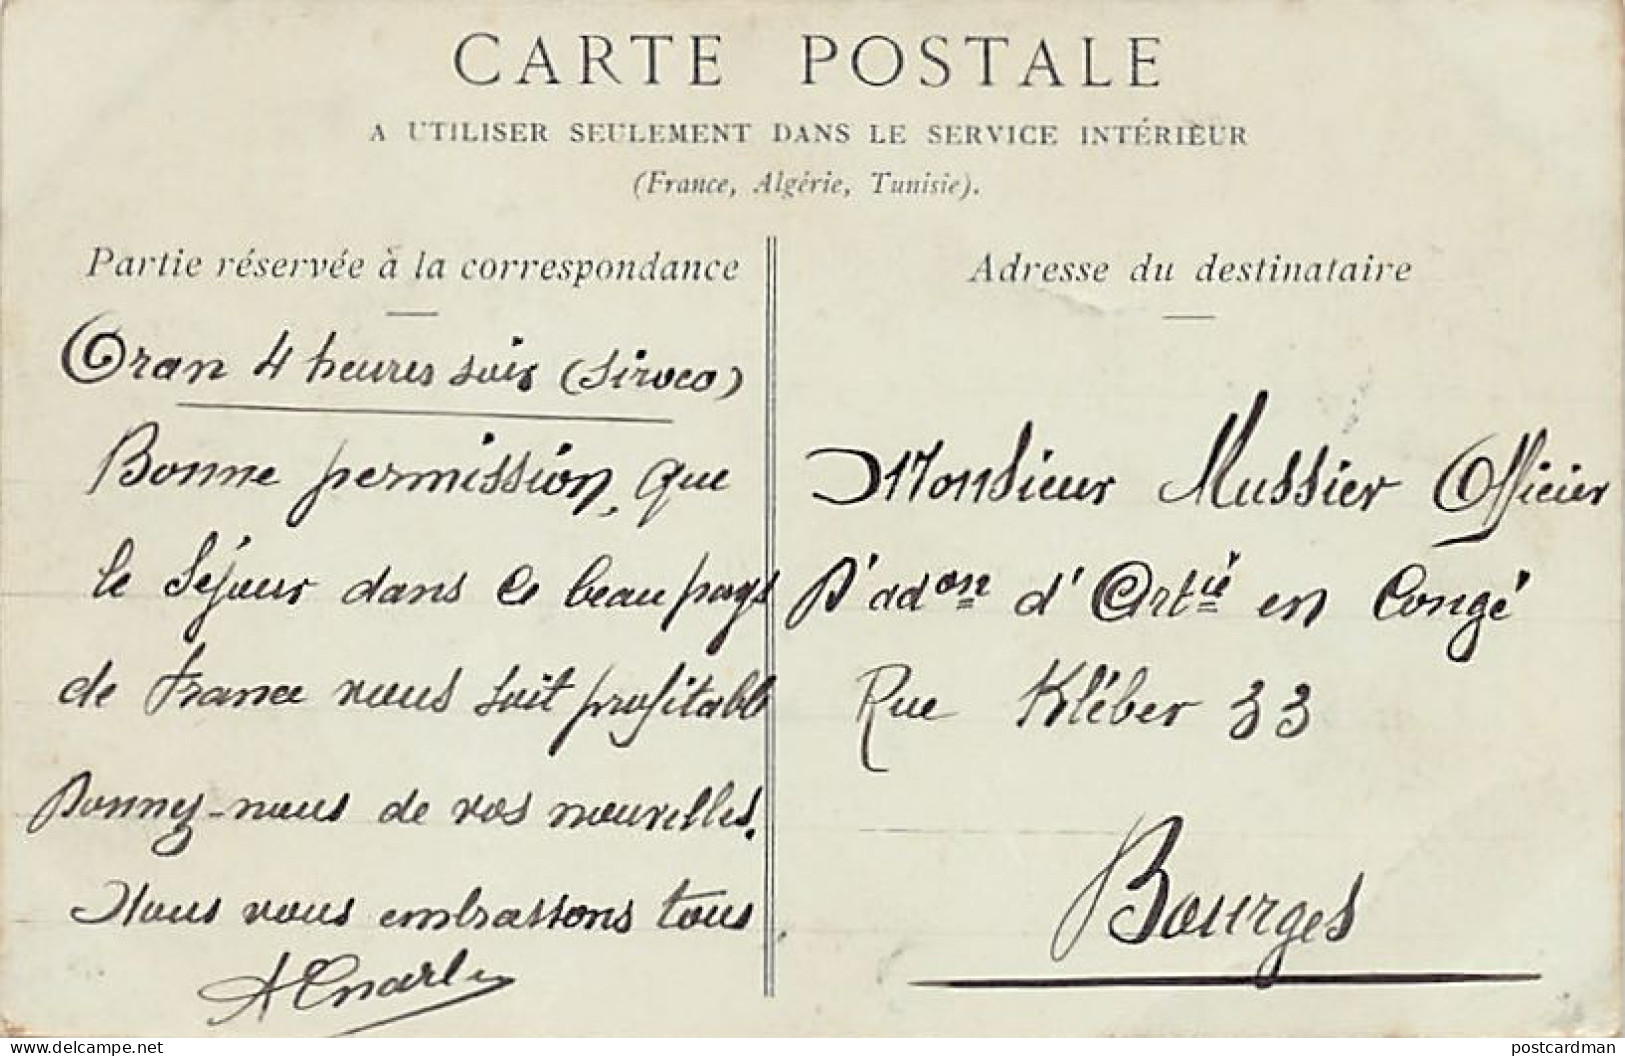 CARTE POSTALE
A UTILISER SEULEMENT DANS LE SERVICE INTÉRIEUR
(France, Algérie, Tunisie).
Partie réservée à la correspondance
Oran 4 heures soir (Siroco)
Bonne permission, que
le séjour dans ce beau pays
de France vous soit profitable
Donnez-nous de vos nouvelles.
Nous vous embrassons tous
Adresse du destinataire
Monsieur Mussier Officier
D'adon d'Artie en Congé
Rue Kléber 33
Bourges
postcardman
www.delcampe.net